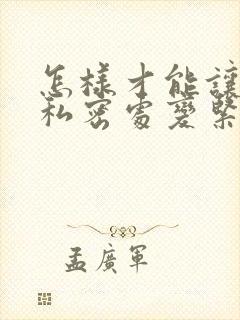 怎樣才能讓
私密處變緊
孟廣軍